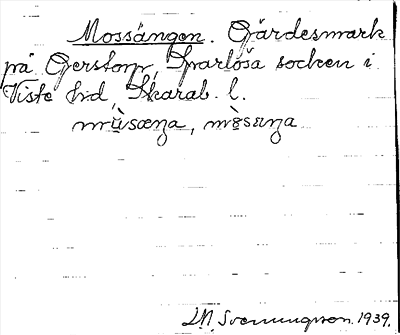 Mossängen. Gärdesmark
på Gerstorp, Sparlösa socken i
Viste hd, Skarab. l.
L.N. Svenungsson. 1939.